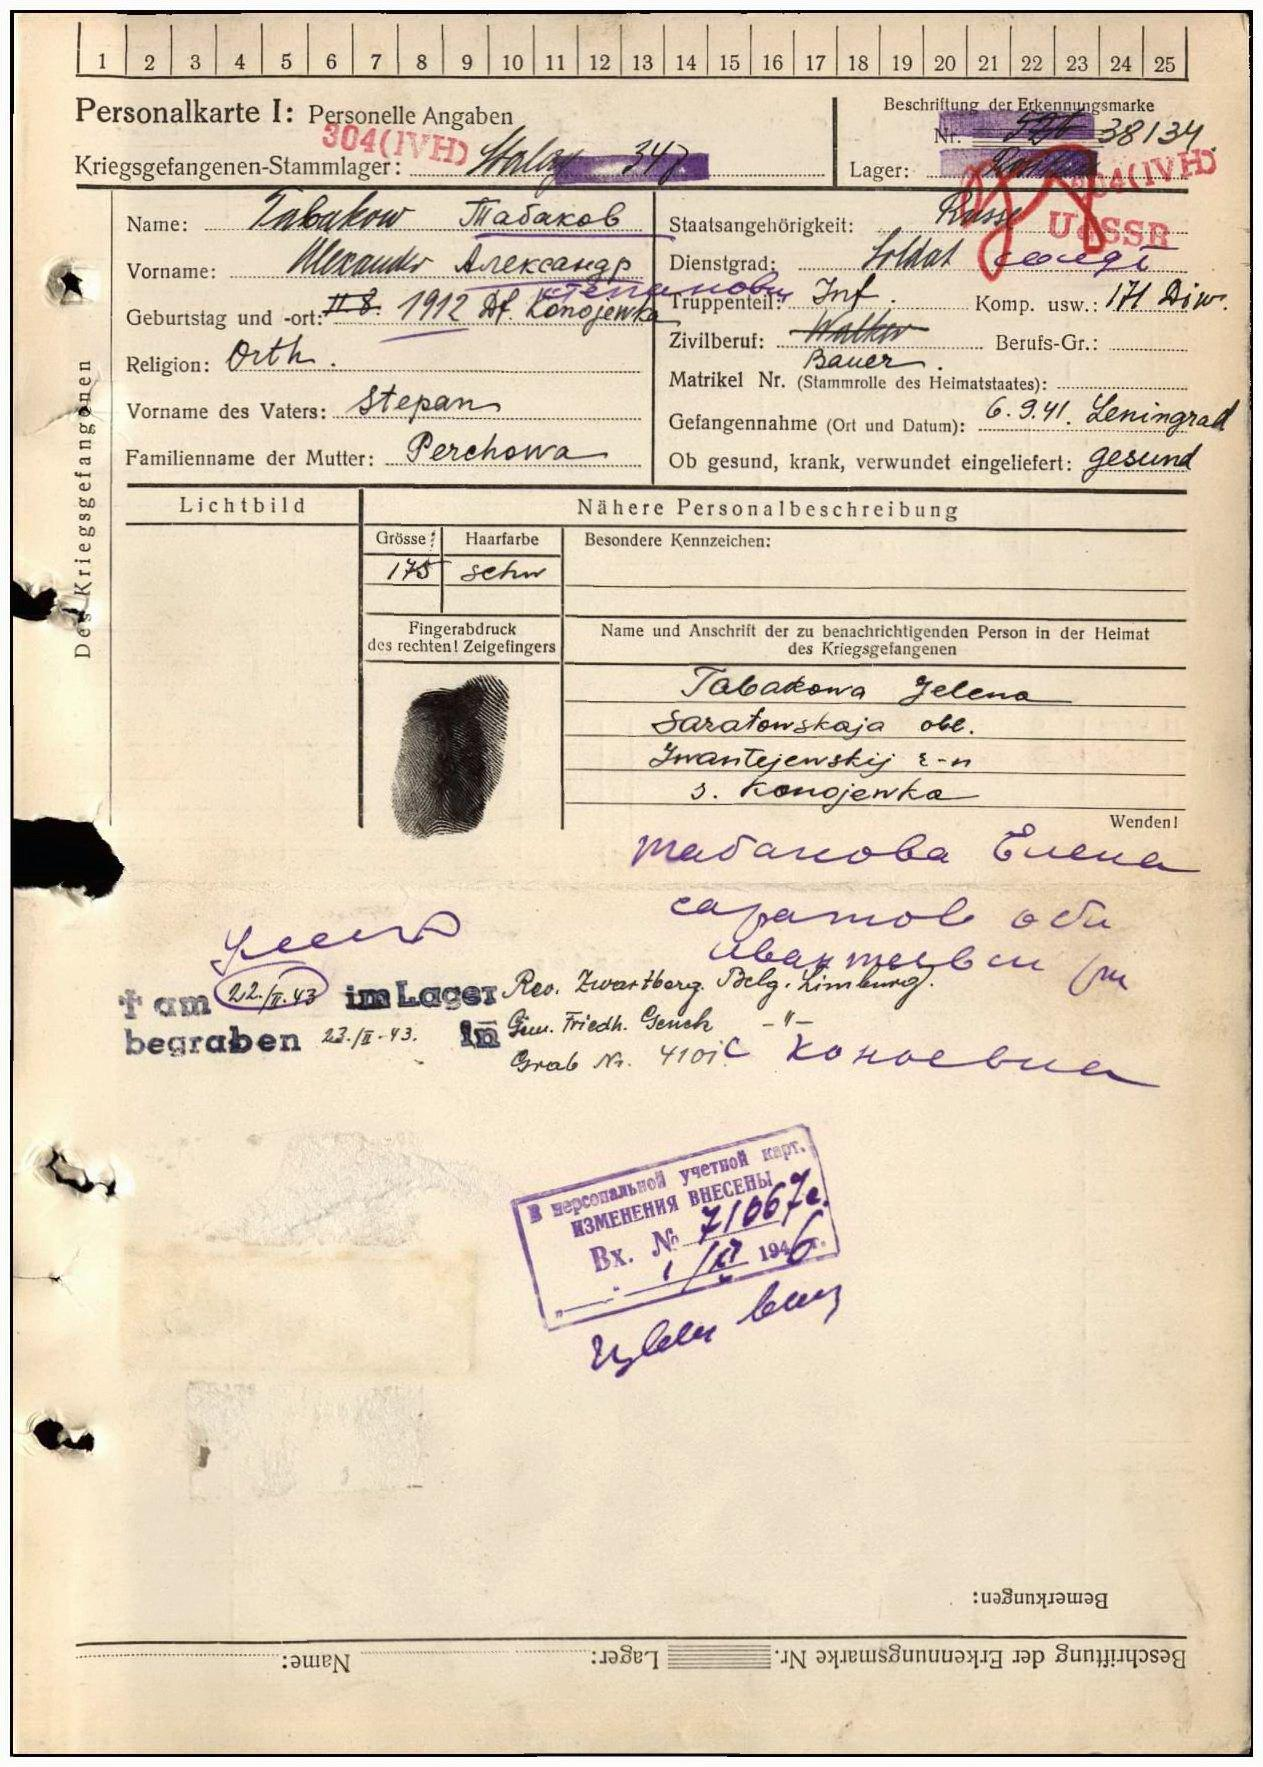 1 2 3 4 5 6 7 8 9 10 11 12 13 14 15 16 17 18 19 20 21 22 23 24 25
Personalkarte I: Personelle Angaben
304(IVH)
Kriegsgefangenen-Stammlager: Stalag 347
Beschriftung der Erkennungsmarke
Nr. 38134
Lager:
304(IVH)
Des Kriegsgefangenen
Name: Tabakow Табаков
Vorname: Alexander Александр
Степанович
Geburtstag und -ort: 11.8. 1912 Df. Konojewka
Religion: Orth.
Vorname des Vaters: Stepan
Familienname der Mutter: Perchowa
Staatsangehörigkeit: Russe
UdSSR
Dienstgrad: Soldat солдат
Truppenteil: Inf. Komp. usw.: 171 Div.
Zivilberuf: Walker Berufs-Gr.:
Bauer.
Matrikel Nr. (Stammrolle des Heimatstaates):
Gefangennahme (Ort und Datum): 6.9.41. Leningrad
Ob gesund, krank, verwundet eingeliefert: gesund
Lichtbild
Nähere Personalbeschreibung
Grösse: Haarfarbe Besondere Kennzeichen:
175 schw
Fingerabdruck
des rechten! Zeigefingers
Name und Anschrift der zu benachrichtigenden Person in der Heimat
des Kriegsgefangenen
Tabakowa Jelena
Saratowskaja obl.
Iwantejewskij r-n
s. Konojewka
Wenden!
Табакова Елена
Саратов обл
† am 22./II.43 im Lager Rev. Zwartberg. Belg. Limburg.
begraben 23./II-43. in Gem. Friedh. Genck -"-
Grab Nr. 410
с Коноевка
В персональной учетной карт.
ИЗМЕНЕНИЯ ВНЕСЕНЫ
Вх. № 71067с.
1946 г.
Bemerkungen:
Beschriftung der Erkennungsmarke Nr. Lager: Name: